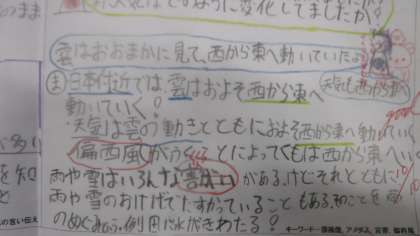 のまま
天気はどのように変化してましたか?
雲はおおまかに見て、西から東へ動いていたよ
天気も西から東へ
ま 日本付近では、雲はおよそ西から東へ
動いていく。
・天気は雲の動きとともにおよそ西から東へ動いてい
が多い
偏西風がふくことによってくもは西から東へい
雨や雪はいろんな害がいがある、けどそれとともに
雨や雪のおけげでたすかっていることもある、そのことを
を知
のめぐみ
水がきわたる?
の言い伝え
キーワード:
アメダス、